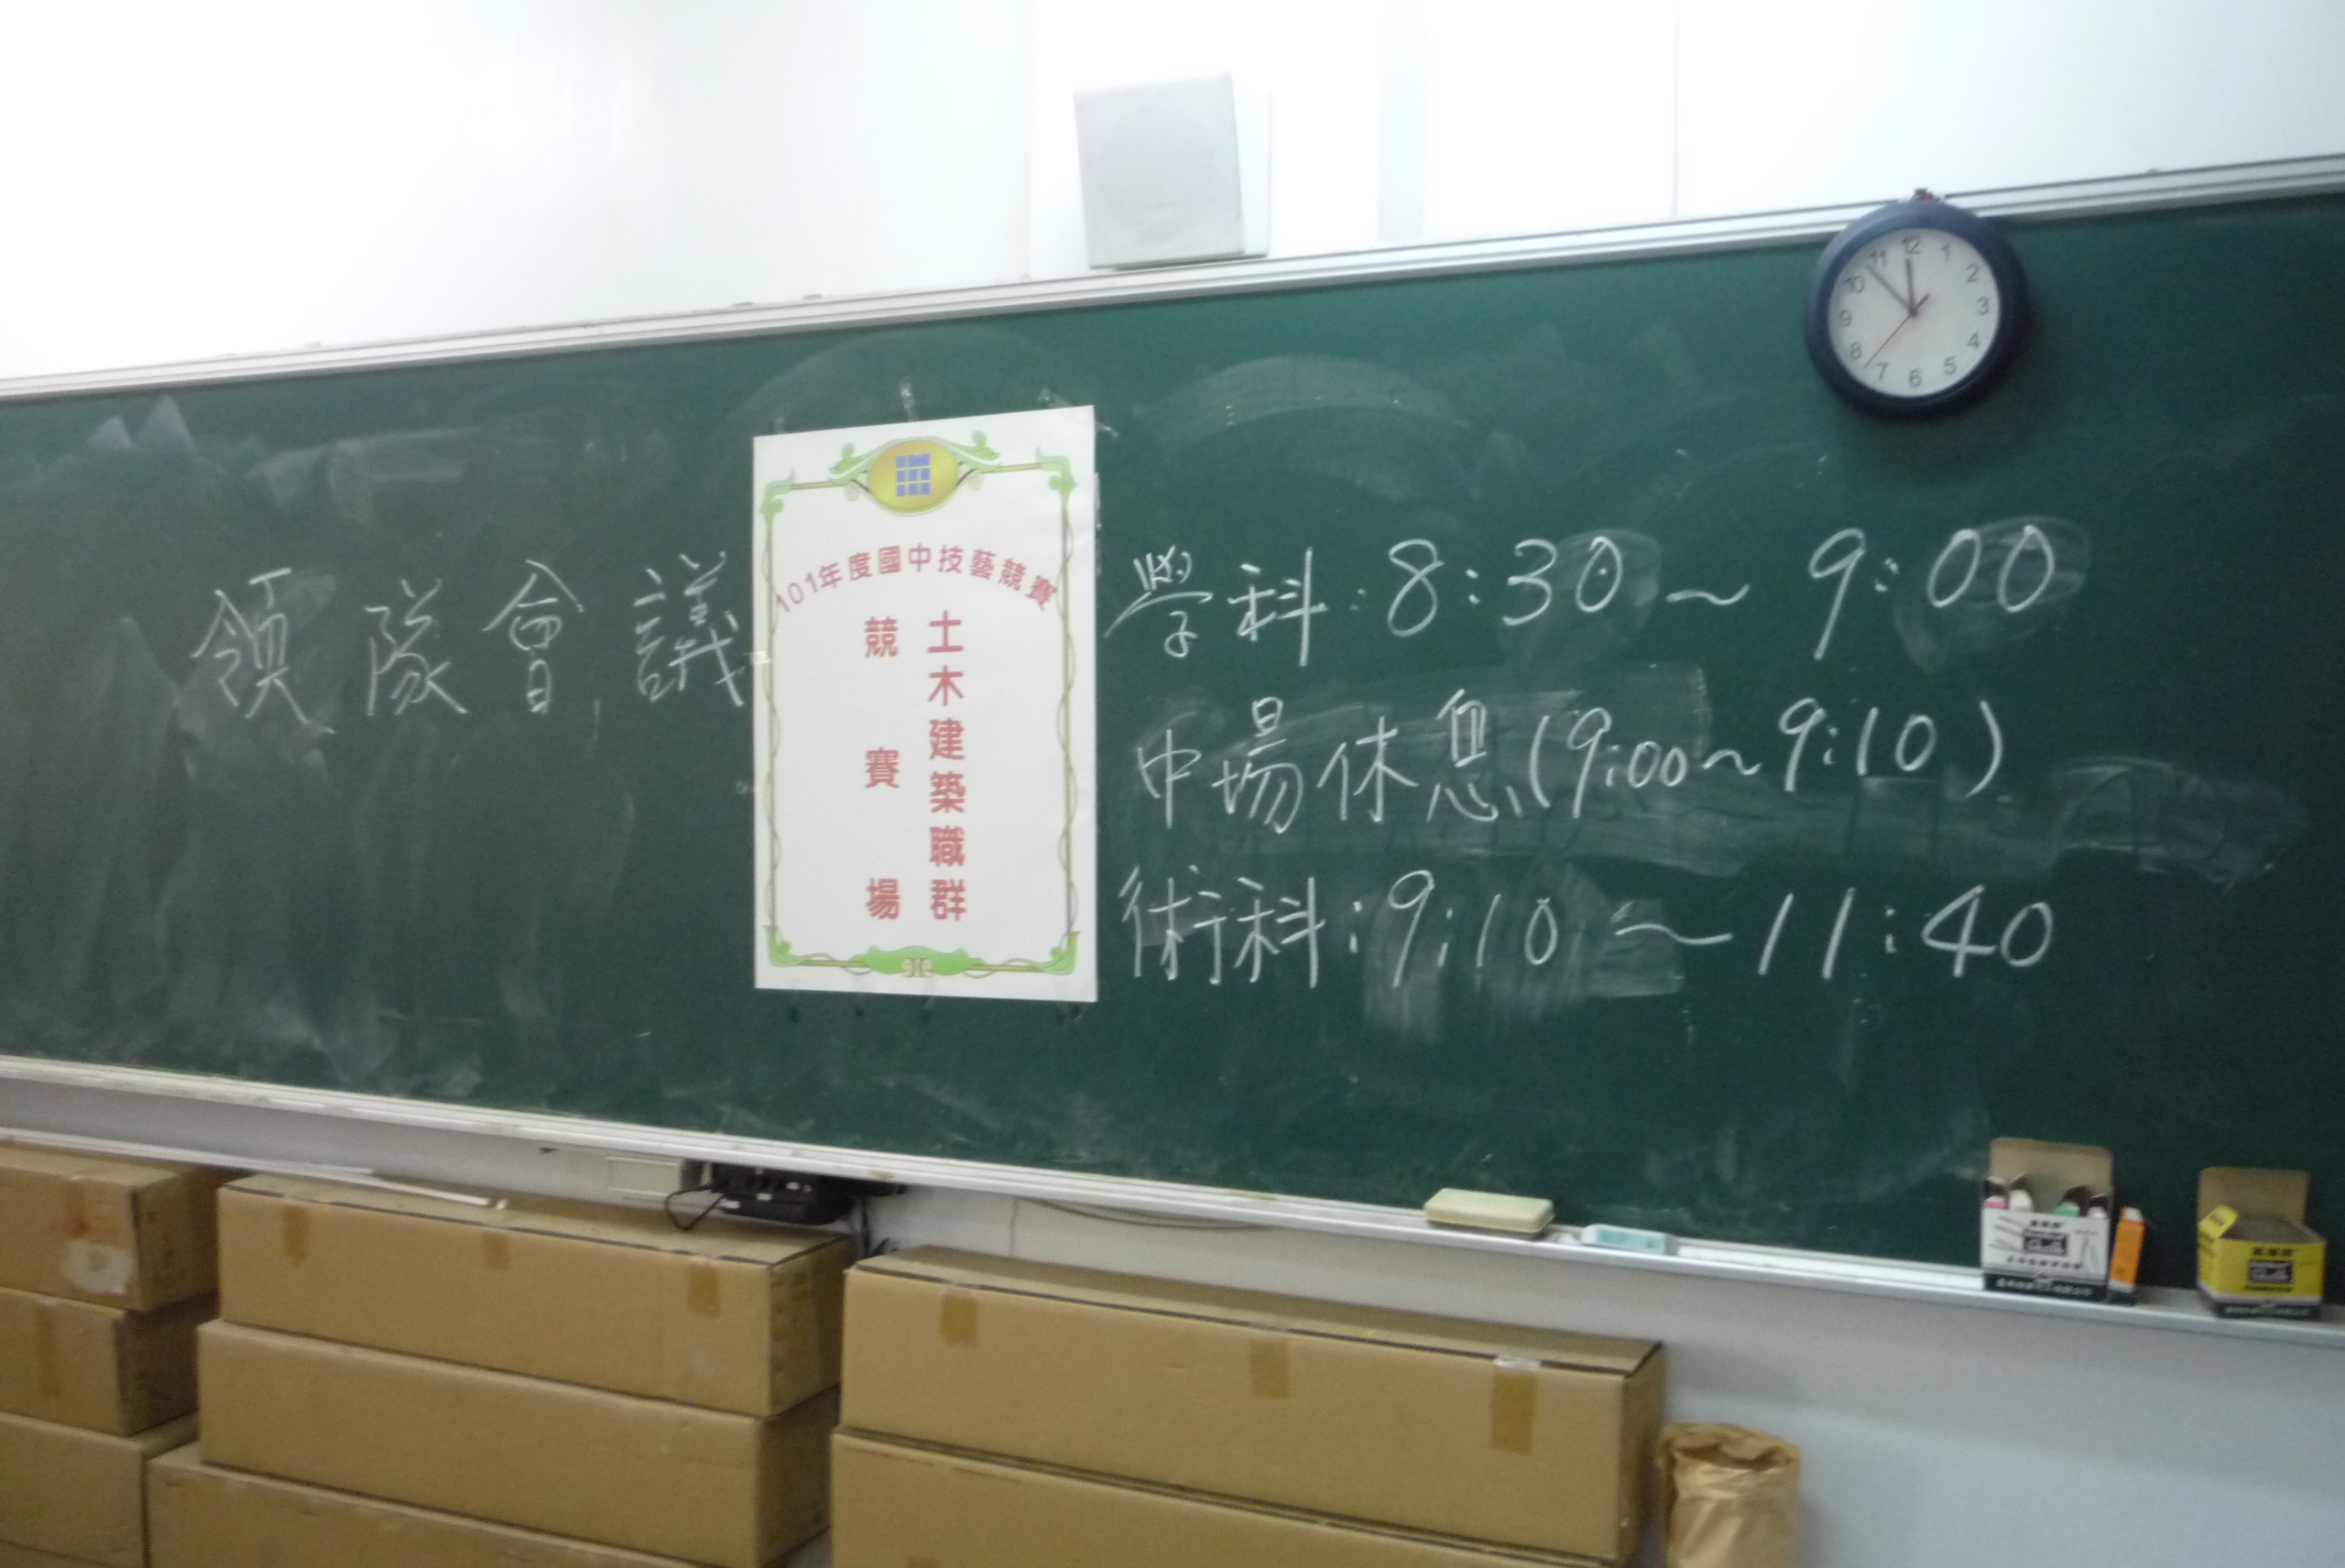 領隊會議
101年度國中技藝競賽
土木建築職群
競賽場
學科:8:30~9:00
中場休息(9:00~9:10)
術科:9:10~11:40
12
1
2
3
4
5
6
7
8
9
10
11